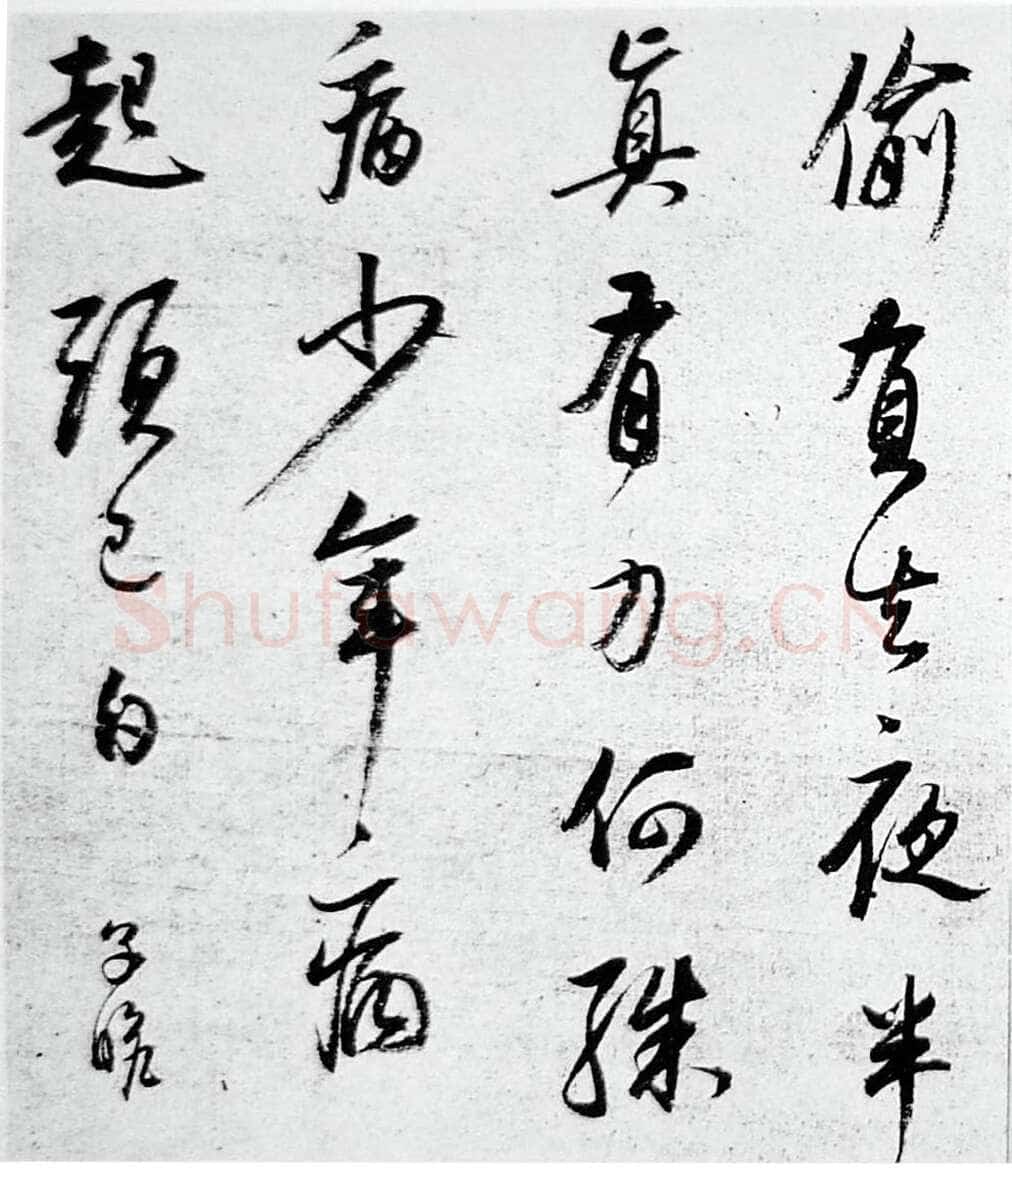 偷負去夜半
真有力何殊
病少年病
起頭已白
子瞻
Shufawang.CN